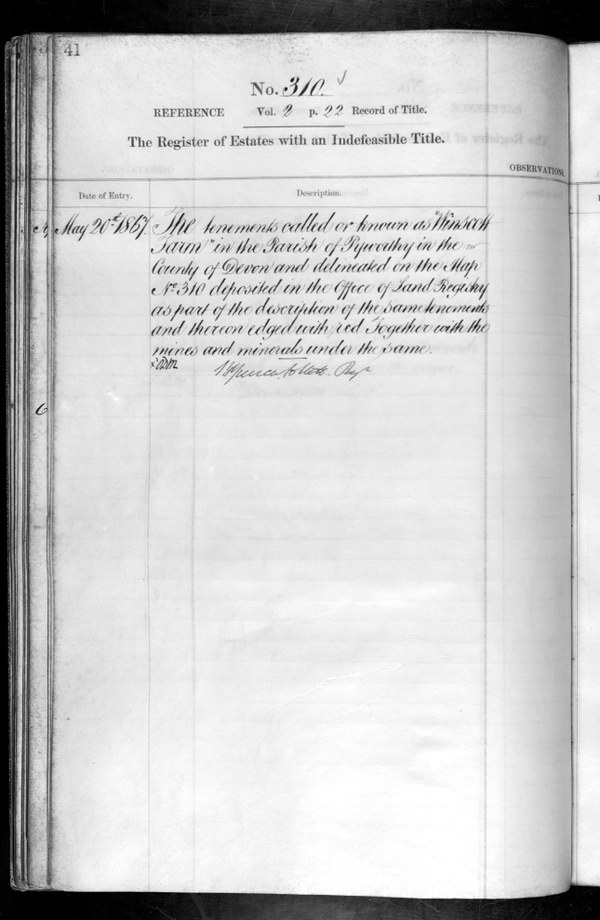 41
No. 310.
REFERENCE Vol. 2 p. 22 Record of Title.
The Register of Estates with an Indefeasible Title.
OBSERVATIONS.
Date of Entry. Description.
May 20th 1867. The tenements called or known as "Winscott
Farm" in the Parish of Pyworthy in the
County of Devon and delineated on the Map
No. 310 deposited in the Office of Land Registry
as part of the description of the same tenements
and thereon edged with red Together with the
mines and minerals under the same.